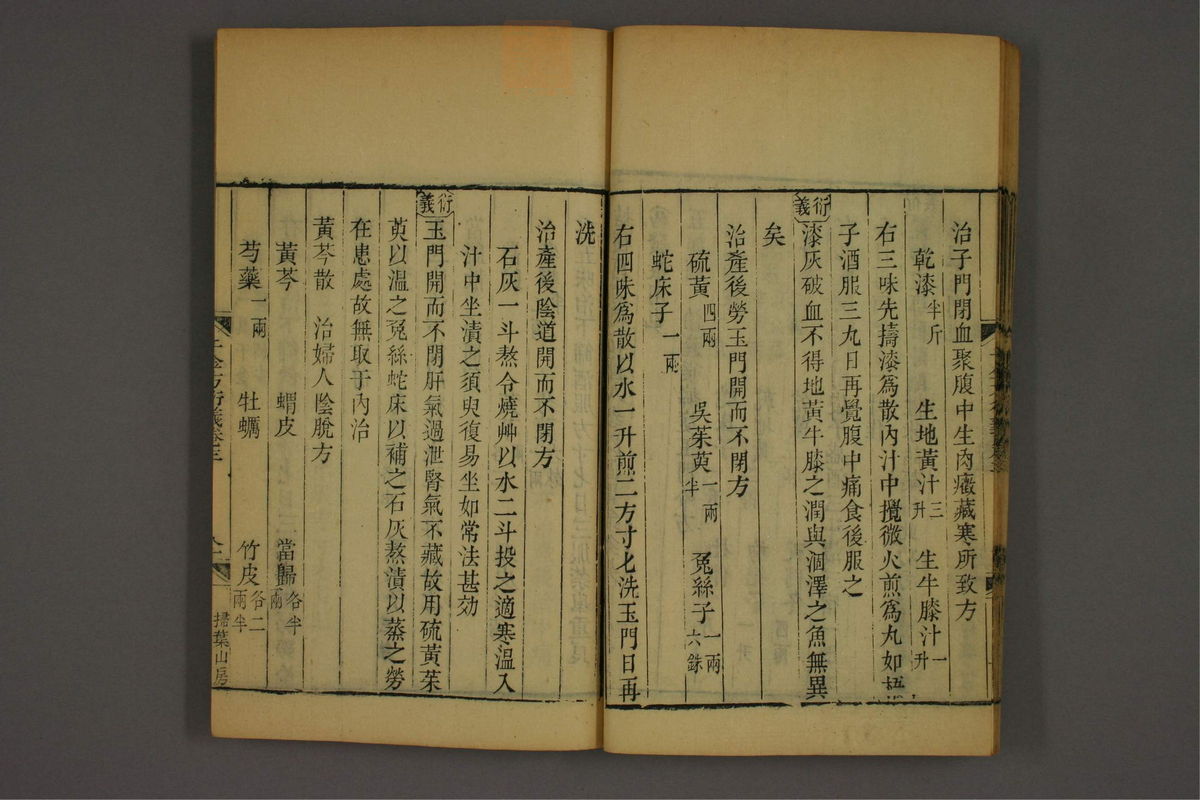 治子門閉血聚腹中生肉癥藏寒所致方
乾漆半斤 生地黃汁三升 生牛膝汁一升
右三味先擣漆為散內汁中攪微火煎為丸如梧
子酒服三丸日再覺腹中痛食後服之
衍義 漆灰破血不得地黃牛膝之潤與涸澤之魚無異
矣
治產後勞玉門開而不閉方
硫黃四兩 吳茱萸一兩半 兔絲子一兩六銖
蛇床子一兩
右四味為散以水一升煎二方寸匕洗玉門日再
洗
治產後陰道開而不閉方
石灰一斗熬令燒艸以水二斗投之適寒溫入
汁中坐漬之須臾復易坐如常法甚効
衍義 玉門開而不閉肝氣過泄腎氣不藏故用硫黃茱
萸以溫之兔絲蛇床以補之石灰熬漬以蒸之勞
在患處故無取于內治
黃芩散 治婦人陰脫方
黃芩 蝟皮 當歸各半兩
芍藥一兩 牡蠣 竹皮各二兩半
千金方衍義卷三 掃葉山房